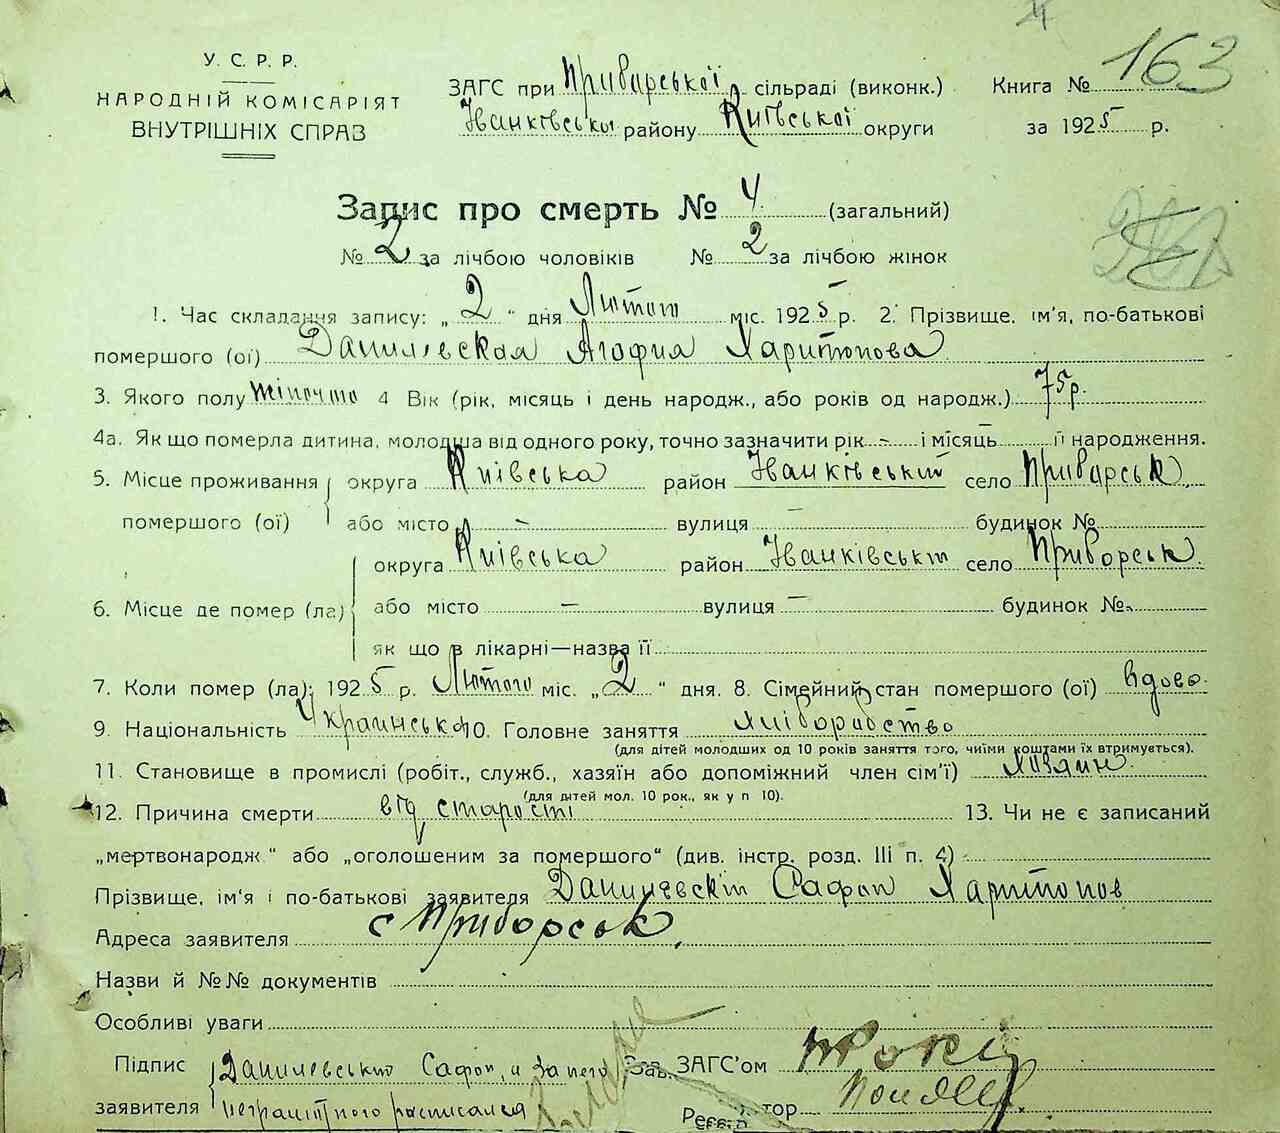 У. С. Р. Р.
НАРОДНІЙ КОМІСАРІЯТ
ВНУТРІШНІХ СПРАВ
ЗАГС при Приварської сільраді (виконк.)
Іванківської району Київської округи
Книга № 163
за 1925 р.
Запис про смерть № 4 (загальний)
№ 2 за лічбою чоловіків № 2 за лічбою жінок
1. Час складання запису: „2“ дня Лютого міс. 1925 р. 2. Прізвище, ім'я, по-батькові
помершого (ої) Данилевская Агофия Харитонова
3. Якого полу жіночого 4 Вік (рік, місяць і день народж., або років од народж.) 75 р.
4а. Як що померла дитина, молодша від одного року, точно зазначити рік - і місяць її народження.
5. Місце проживання округа Київська район Іванківський село Приварськ
помершого (ої) або місто - вулиця - будинок №
округа Київська район Іванківськ село Приборськ
6. Місце де помер (ла) або місто — вулиця — будинок №
як що в лікарні—назва її
7. Коли помер (ла): 1925 р. Лютого міс. „2“ дня. 8. Сімейний стан помершого (ої) вдова
9. Національність Украинська 10. Головне заняття хліборобство
(для дітей молодших од 10 років заняття того, чиїми коштами їх втримується).
11. Становище в промислі (робіт., служб., хазяїн або допоміжний член сім'ї) хозяин
(для дітей мол. 10 рок., як у п 10).
12. Причина смерти від старості 13. Чи не є записаний
„мертвонародж.“ або „оголошеним за помершого“ (див. інстр. розд. III п. 4) -
Прізвище, ім'я і по-батькові заявителя Данилевскій Сафон Харитонов
Адреса заявителя с Приборськ.
Назви й №№ документів
Особливі уваги
Підпис Данилевський Сафон, а за него Зав. ЗАГС'ом
заявителя неграмотного расписался